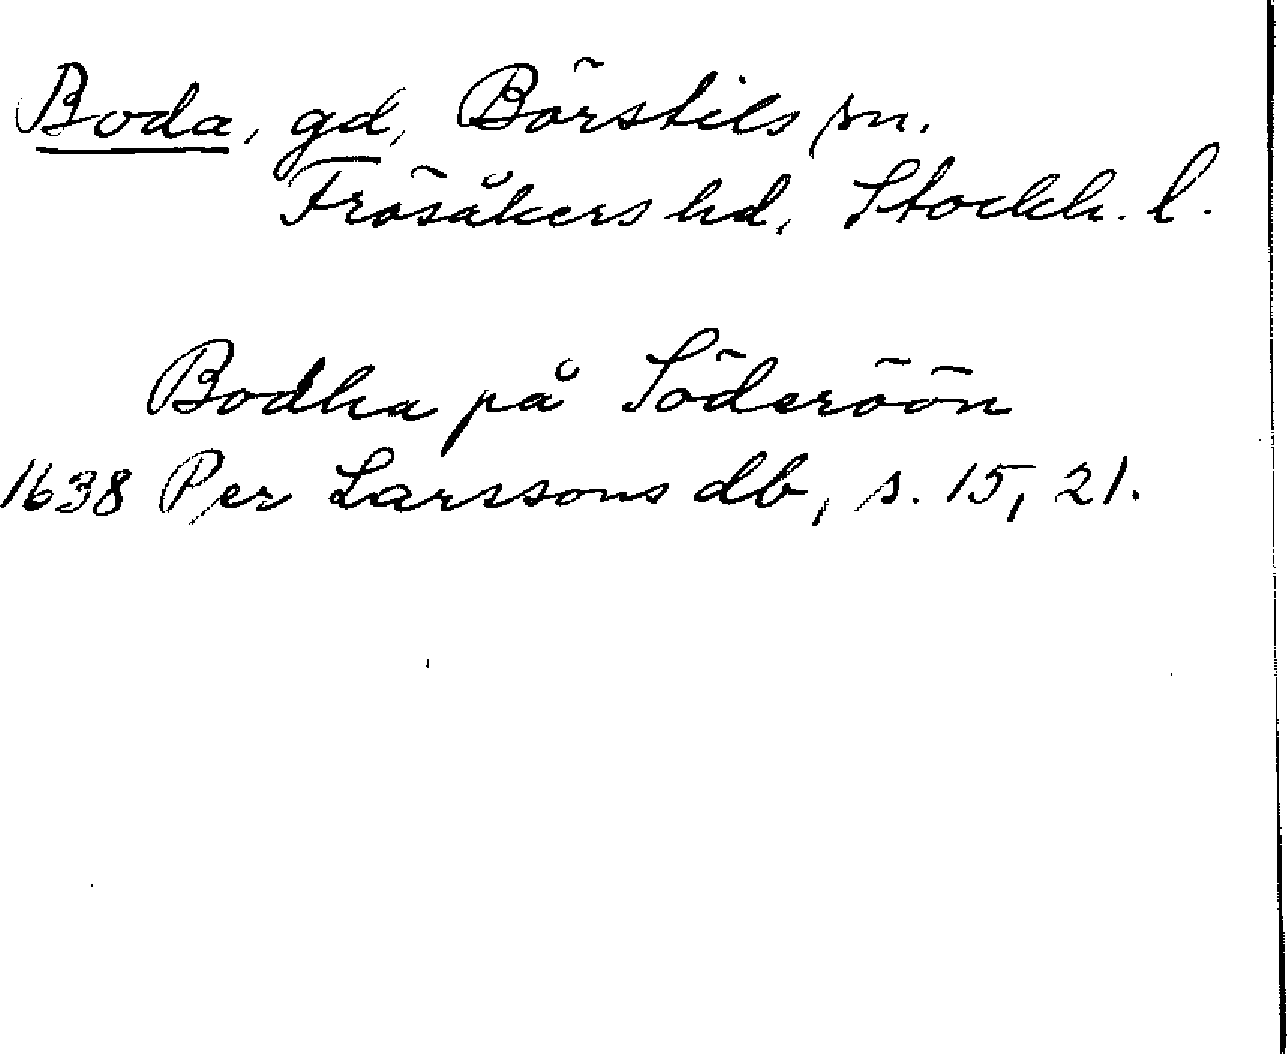 Boda, gd, Börstils sn.
Frösåkers hd, Stockh. l.
Bodha på Söderöön
1638 Per Larssons db, s. 15, 21.